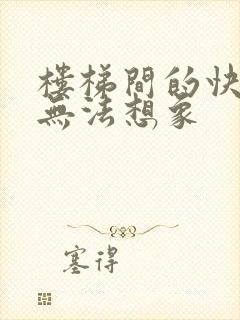 樓梯間的快
無法想象
塞得